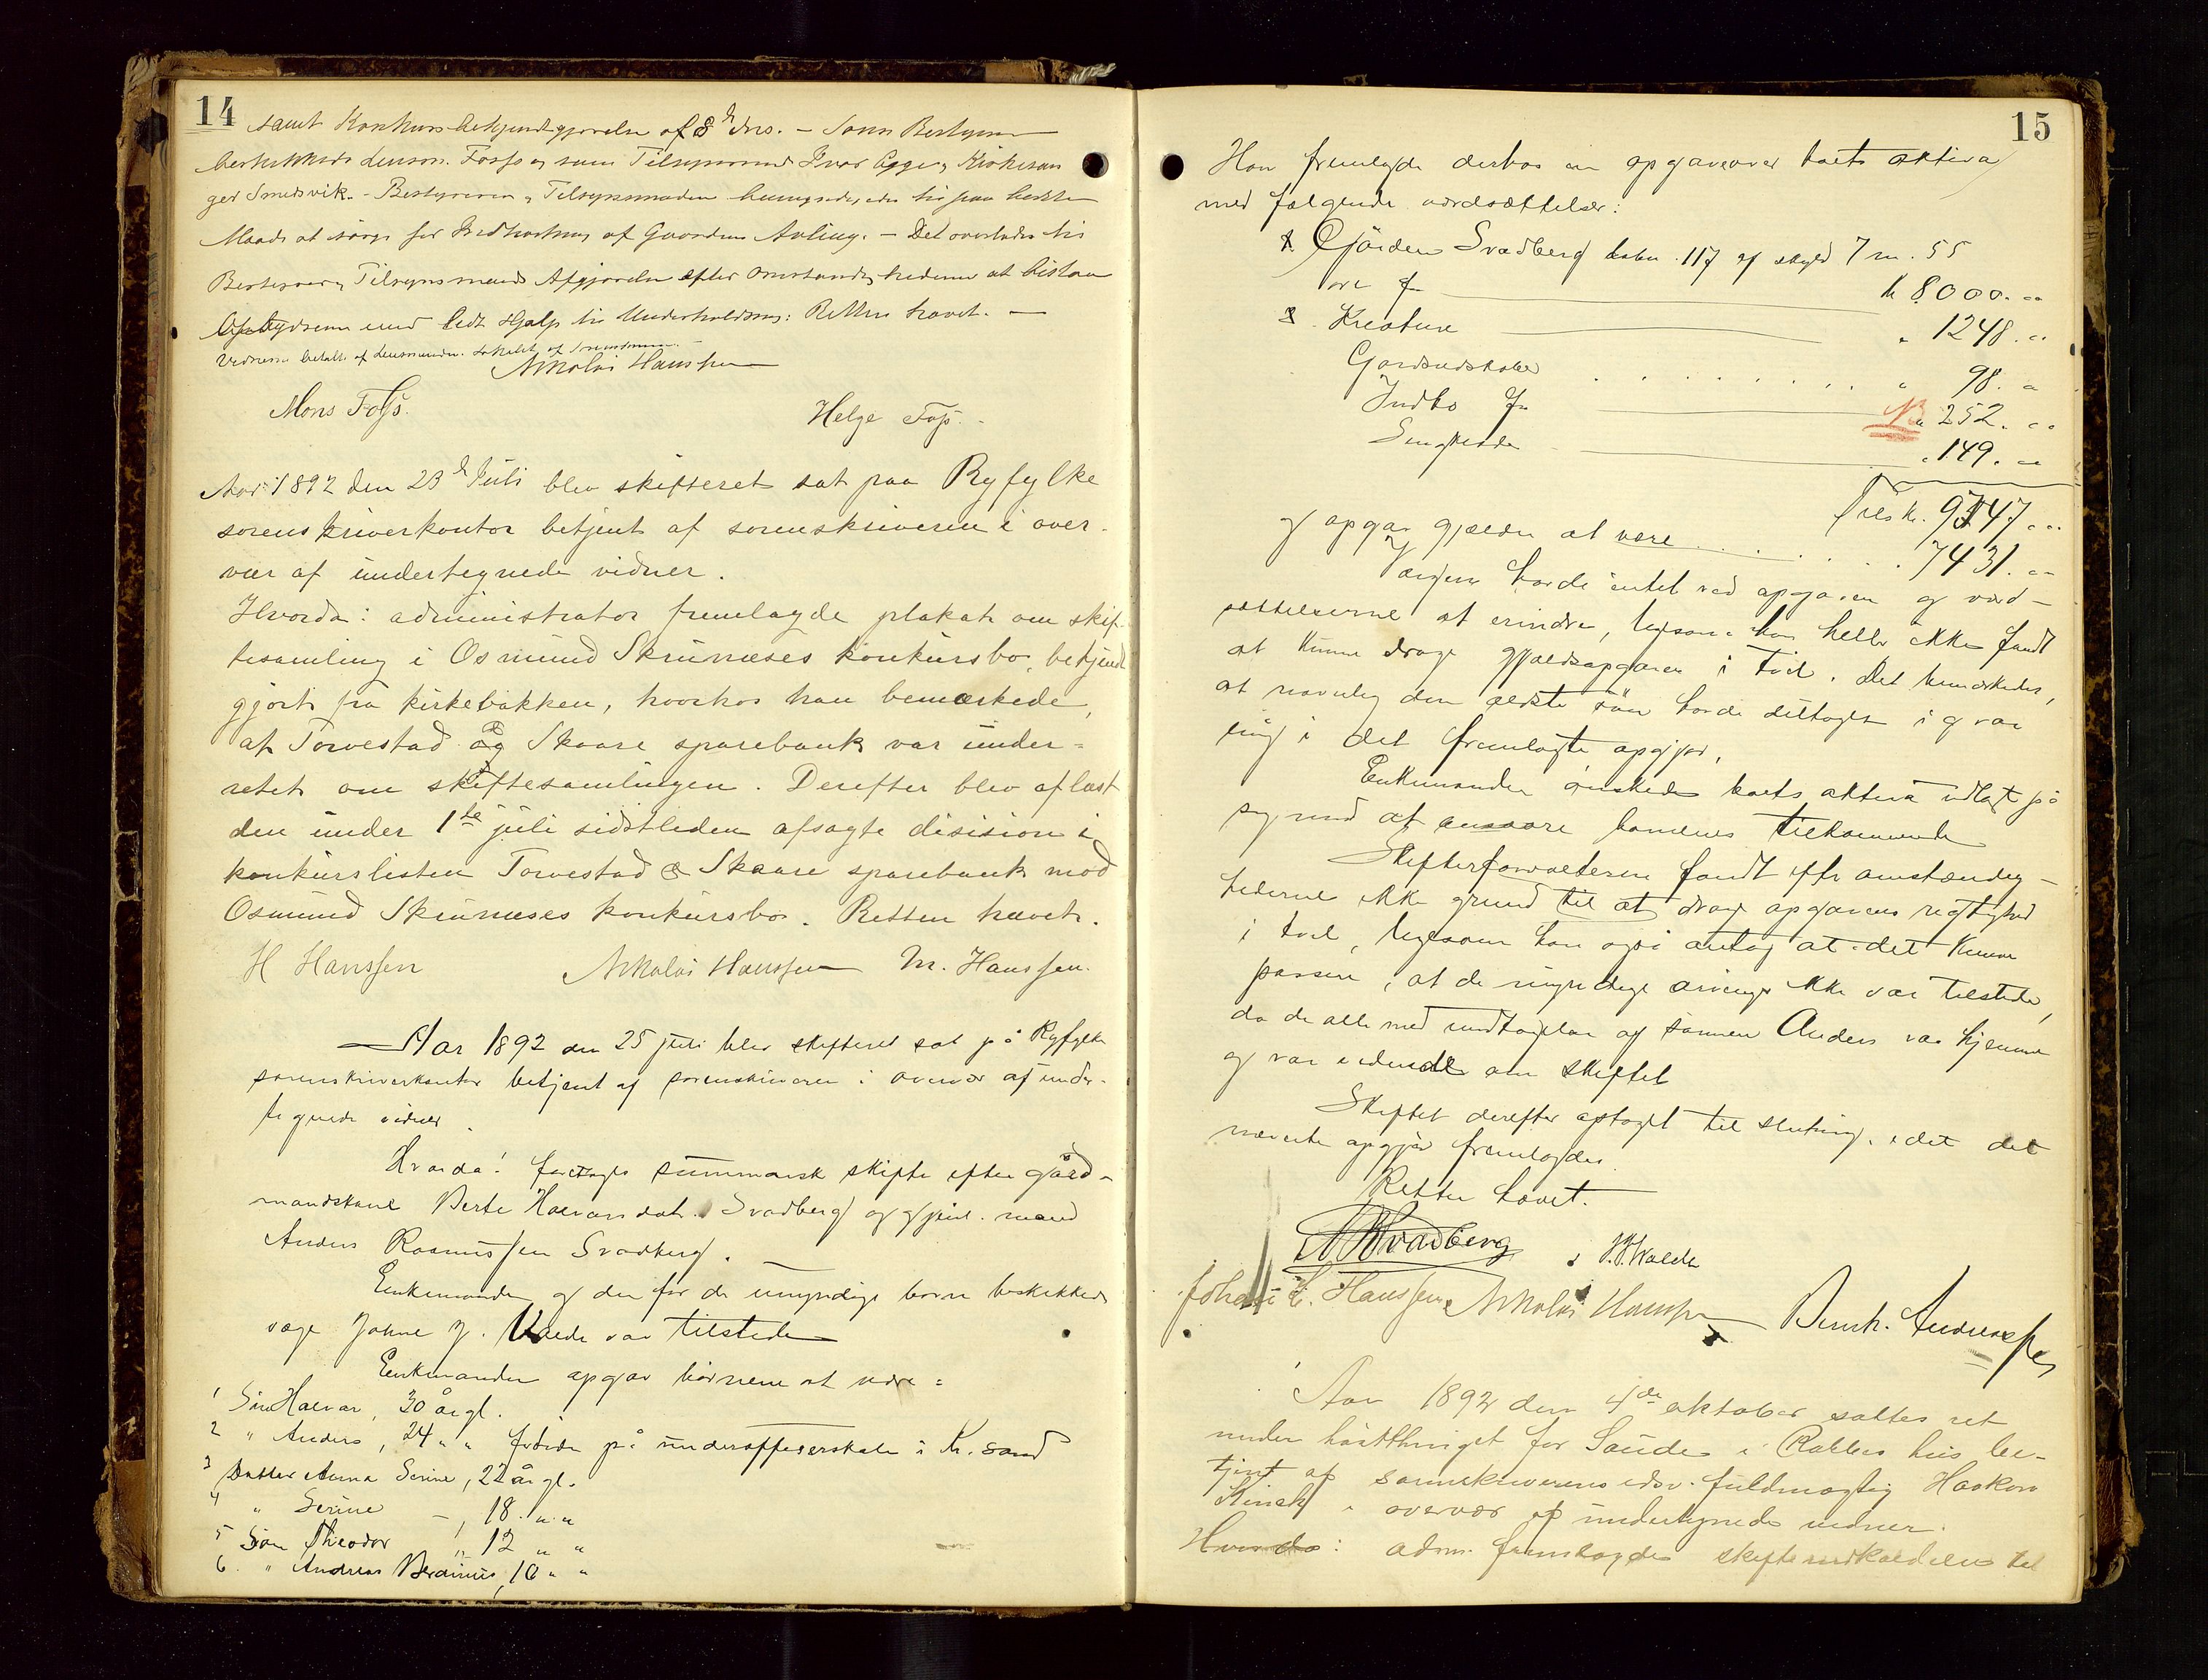 14
samt Konkurs-bekjendtgjørelse af 8d ds. – Som Bestyrer
beskikkedes lensm. Foss og som Tilsynsmænd Ivar Egge og Kirkesan
ger Smedsvik. – Bestyreren og Tilsynsmænden bemyndigedes til paa bedste
Maade at sørge for Indhøstning af Gaardens Avling. – Det overlodes til
Bestyrer og Tilsynsmænds Afgjørelse efter Omstændighederne at bistaa
med lidt Hjælp til Underholdning: Retten hævet. –
Vidnerne betalt af lensmanden.
Nikolai Hanssen
Mons Foss. Helge Foss.
Aar 1892 den 23d Juli blev skifteret sat paa Ryfylke
sorenskriverkontor betjent af sorenskriveren i over-
vær af undertegnede vidner.
Hvorda: administrator fremlagde plakat om skif-
tesamling i Osmund Skeunæses konkursbo, bekjendt
gjort fra kirkebakken, hvorhos han bemærkede,
at Torvestad og Skaare sparebank var under-
rettet om skiftesamlingen. Derefter blev aflæst
den under 1ste juli sidstleden afsagte disision i
konkurslisten Torvestad & Skaare sparebank mod
Osmund Skeunæses konkursbo. Retten hævet.
H Hanssen Nikolai Hanssen M. Hanssen.
Aar 1892 den 25 juli blev skifteret sat på Ryfylke
sorenskriverkontor betjent af sorenskriveren i overvær af under-
tegnede vidner.
Hvorda: foretoges summarisk skifte efter gård-
mandskone Berte Halvorsdatr. Svadberg og gjenl. mand
Anders Rasmussen Svadberg.
Enkemanden og den for de umyndige børn beskikkede
værge Johne J. Walde var tilstede
Enkemanden opgav børnene at være:
1 Søn Halvar, 30 år gl.
2 " Anders, 24 " " på underofficerskolen i Kr.sand
3 Datter Anna Serine, 22 år gl.
4 " Serine –, 18. " "
5 Søn Theodor , 12 " "
6 " Andreas Berdinius, 10 " "
15
Han fremlagde derhos en opgave over boets aktiva
med følgende værdsættelser:
1. Gården Svadberg b.no. 117 af skyld 7 m. 55
øre for kr 8000. "
2. Kreature " 1248. "
Gårdsredskaber " 98. "
Indbo for NB " 252. "
Sengklæde " 149. "
Tils kr. 9747. "
og opgav gjælden at være 7431. "
Værgen havde intet ved opgaven og værd-
sættelserne at erindre, ligesom han heller ikke fandt
at kunne drage gjældsopgaven i tvil. Det bemærkedes,
at navnlig den ældste søn havde deltaget i og var
enig i det fremlagte opgjør.
Enkemanden ønskede boets aktiva udlagt på
sig mod at ansvare børnenes tilkommende
Skifteforvalteren fandt efter omstændig-
hederne ikke grund til at drage opgavens rigtighed
i tvil, ligesom han også antog at det kunne
passere, at de myndige arvinger ikke var tilstede,
da de alle med undtagelse af sønnen Anders var hjemme
og var vidende om skiftet
Skiftet derefter optaget til slutning, idet det
nævnte opgjør fremlagdes.
Retten hævet.
A R Svadberg J. J. Walde
Johan E. Hanssen Nikolai Hanssen Bernh. Andreassen
Aar 1892 den 4de oktober sattes ret
under høstthinget for Saude i Rabbes hus be-
tjent af sorenskriverens edsv. fuldmægtig Haakon
Kinck i overvær af undertegnede vidner.
Hvorda: adm. fremlagde skifteindkaldelse til